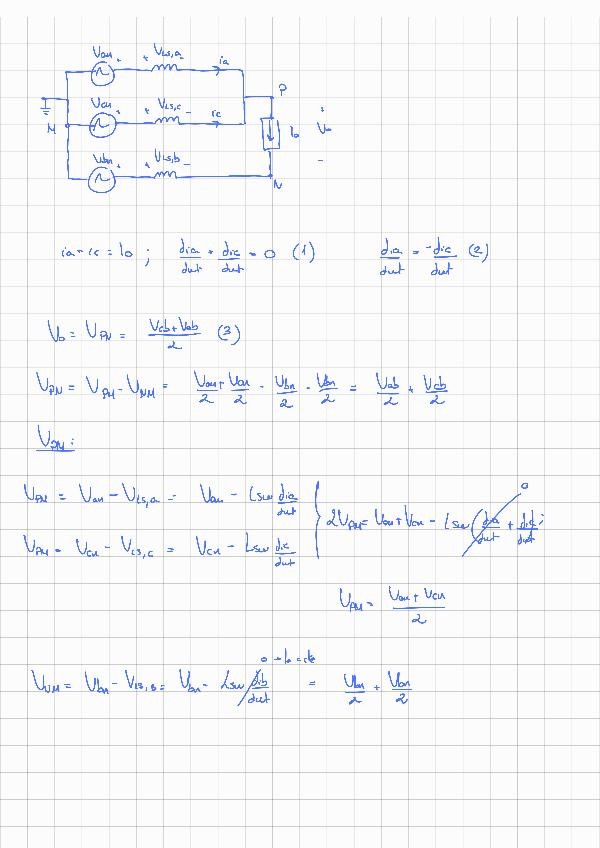 Van + + VLS,a - ia
Vcn + + VLS,c - ic
P
M
Io + Vo -
Vbn + + VLS,b -
N
ia + ic = Io ; dia/dωt + dic/dωt = 0 (1) dia/dωt = -dic/dωt (2)
Vo = VPN = (Vcb + Vab)/2 (3)
VPN = VPM - VNM = Van/2 + Vcn/2 - Vbn/2 - Vbn/2 = Vab/2 + Vcb/2
VPM:
VPM = Van - VLS,a = Van - Lsω dia/dωt
2VPM = Van + Vcn - Lsω (dia/dωt + dic/dωt) 0 ;
VPM = Vcn - VLS,c = Vcn - Lsω dic/dωt
VPM = (Van + Vcn)/2
0 → Io = cte
VNM = Vbn - VLS,b = Vbn - Lsω dib/dωt = Vbn/2 + Vbn/2